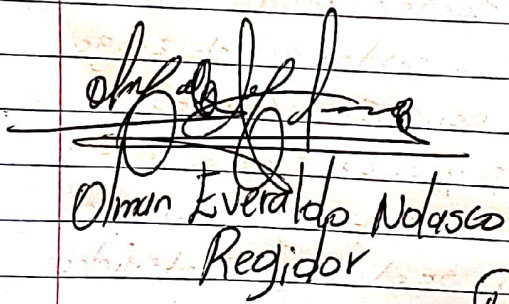 Olman Everaldo Nolasco
Regidor